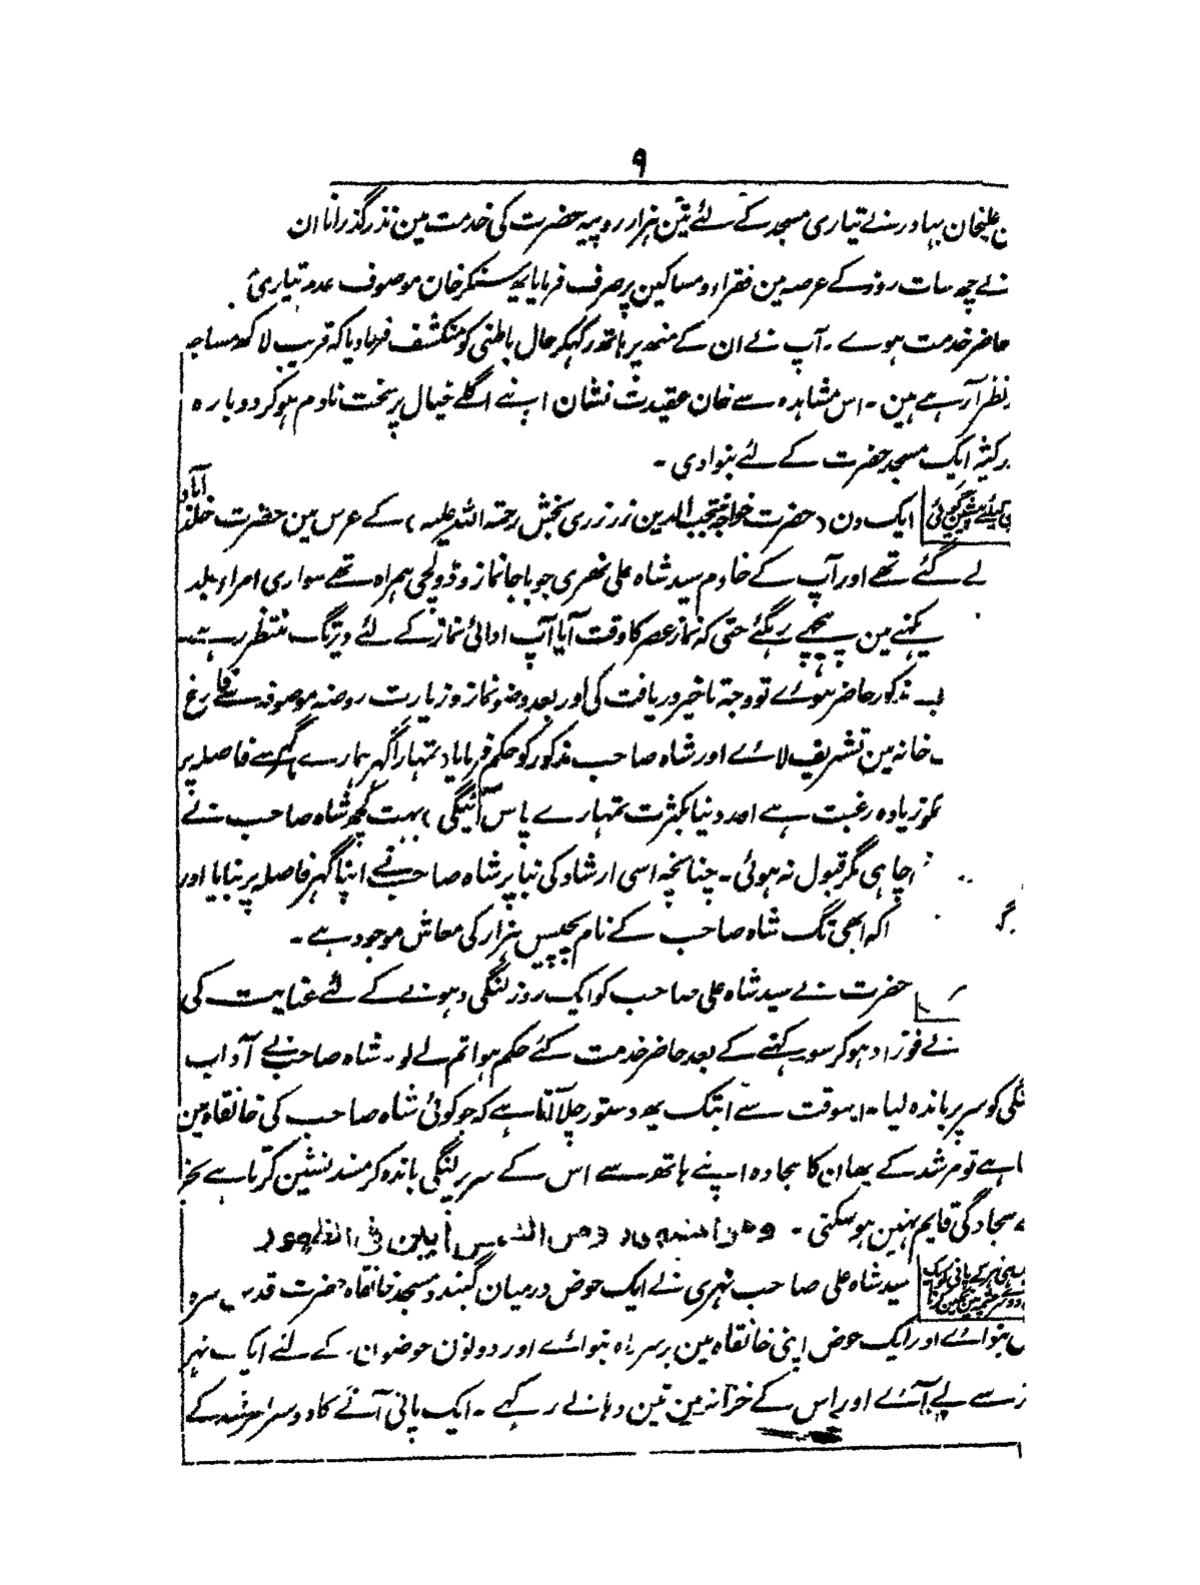 ۹
علیخان بہادر نے تیاری مسجد کے لئے تین ہزار روپیہ حضرت کی خدمت مین نذر گذرانا ان
نے چھ سات روز کے عرصہ مین فقراء و مساکین پر صرف فرمایا یہ سنکر خان موصوف عدم تیاری
حاضر خدمت ہوے ۔ آپ نے ان کے منھ پر ہاتھ رکہکر حال باطنی کو منکشف فرمادیا کہ قریب لاکھ مساجد
نظر آرہے ہین ۔ اس مشاہدہ سے خان عقیدت نشان اپنے اگلے خیال پر سخت نادم ہوکر دوبارہ
ایک مسجد حضرت کے لئے بنوادی ۔
ایک دن (حضرت خواجہ منتجب الدین زرزری بخش رحمتہ اللہ علیہ) کے عرس مین حضرت خلد آباد
لے گئے تھے اور آپ کے خادم سید شاہ علی نہری جو با جانماز و ڈولچی ہمراہ تھے سواری امراء بلد
یکہنے مین پیچھے رہگئے حتی کہ نماز عصر کا وقت آیا آپ ادائی نماز کے لئے دیر تک منتظر رہے
مذکور حاضر ہوے تو وجہ تاخیر دریافت کی اور بعد وضو نماز و زیارت روضہ موصوفہ سے فارغ
خانہ مین تشریف لائے اور شاہ صاحب مذکور کو حکم فرمایا (تمہارا گہر ہمارے گہر سے فاصلہ پر
زیادہ رغبت ہے اور دنیا بکثرت تمہارے پاس آئیگی) بہت کچھ شاہ صاحب نے
چاہی مگر قبول نہ ہوئی ۔ چنانچہ اسی ارشاد کی بنا پر شاہ صاحب نے اپنا گہر فاصلہ پر بنایا اور
کہ ابھی تک شاہ صاحب کے نام پچیس ہزار کی معاش موجود ہے ۔
حضرت نے سید شاہ علی صاحب کو ایک روز لنگی دہونے کے لئے عنایت کی
نے فوراً دہوکر سوکہنے کے بعد حاضر خدمت کئے حکم ہوا تم لے لو ۔ شاہ صاحب نے آداب
لنگی کو سر پر باندہ لیا ۔ اسوقت سے ابتک یہ دستور چلا آتا ہے کہ جو کوئی شاہ صاحب کی خانقاہ مین
ہے تو مرشد کے یہان کا سجادہ اپنے ہاتھ سے اس کے سر پر لنگی باندہ کر مسند نشین کرتا ہے
سجادگی قایم نہین ہوسکتی ۔ وھذا مشہور ومن الشمس أبین فی الظہور
سید شاہ علی صاحب نہری نے ایک حوض درمیان گنبد و مسجد خانقاہ حضرت قدس سرہ
بنوائے اور ایک حوض اپنی خانقاہ مین برسر راہ بنوائے اور دونون حوضون کے لئے ایک نہر
سے لے آئے اور اس کے خزانہ مین تین دہانے رکہے ۔ ایک پانی آنے کا دوسرا مرشد کے